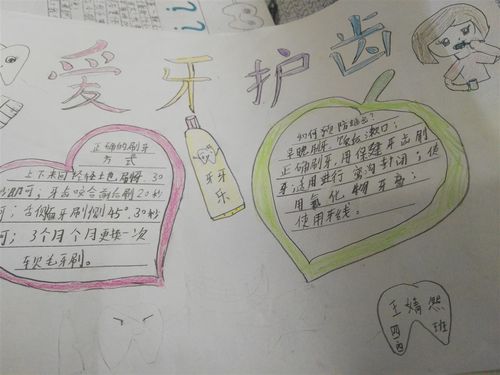 爱牙护齿
正确的刷牙
方式
上下来回轻轻
30
即可；牙齿咬合面来回刷20秒
牙刷倾45°.30秒
可；3个月个月更换一次
软毛牙刷。
牙
牙
乐
如何预防蛀牙？
早晚刷牙，饭后漱口；
正确刷牙，用保健牙齿刷
牙；适用进行窝沟封闭；使
用氟化物牙膏；
使用牙线。
王婧熙
四
班